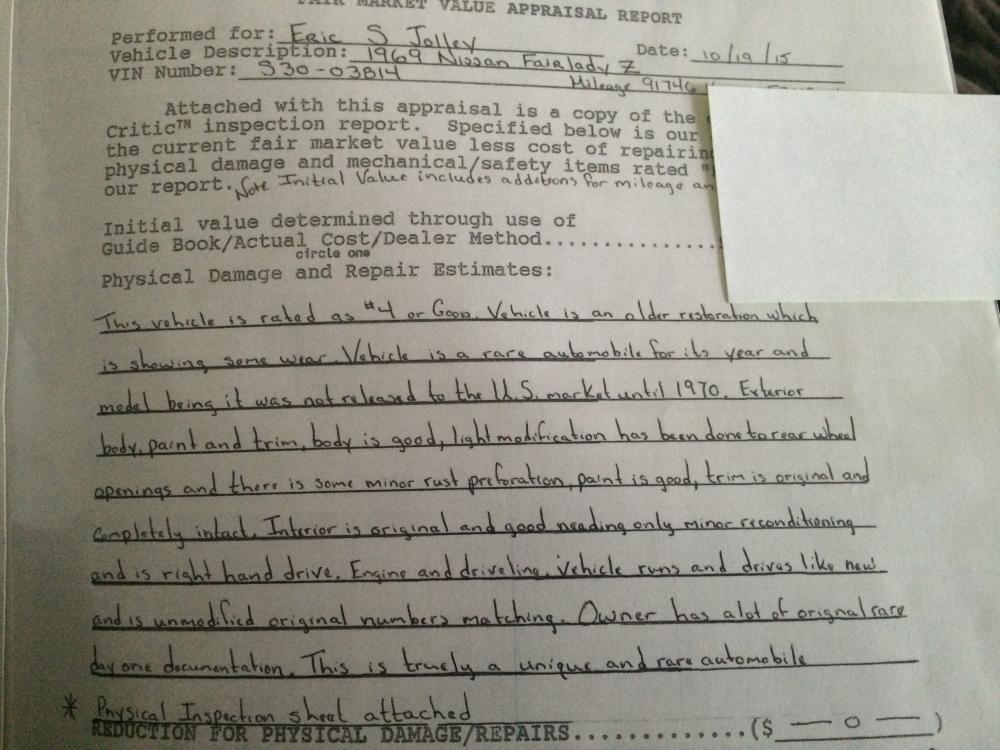 FAIR MARKET VALUE APPRAISAL REPORT
Performed for: Eric S Jolley
Vehicle Description: 1969 Nissan Fairlady Z Date: 10/19/15
VIN Number: S30-03814
Mileage 91746
Attached with this appraisal is a copy of the
Critic™ inspection report. Specified below is our
the current fair market value less cost of repairing
physical damage and mechanical/safety items rated
our report. Note Initial Value includes additions for mileage an
Initial value determined through use of
Guide Book/Actual Cost/Dealer Method....................
circle one
Physical Damage and Repair Estimates:
This vehicle is rated as #4 or Good. Vehicle is an older restoration which
is showing some wear Vehicle is a rare automobile for its year and
model being it was not released to the U.S. market until 1970. Exterior
body, paint and trim, body is good, light modification has been done to rear wheel
openings and there is some minor rust preforation, paint is good, trim is original and
completely intact. Interior is original and good needing only minor reconditioning
and is right hand drive. Engine and driveline. Vehicle runs and drives like new
and is unmodified original numbers matching. Owner has alot of orignal rare
day one documentation. This is truely a unique and rare automobile
* Physical Inspection sheet attached
REDUCTION FOR PHYSICAL DAMAGE/REPAIRS..............($ — 0 — )